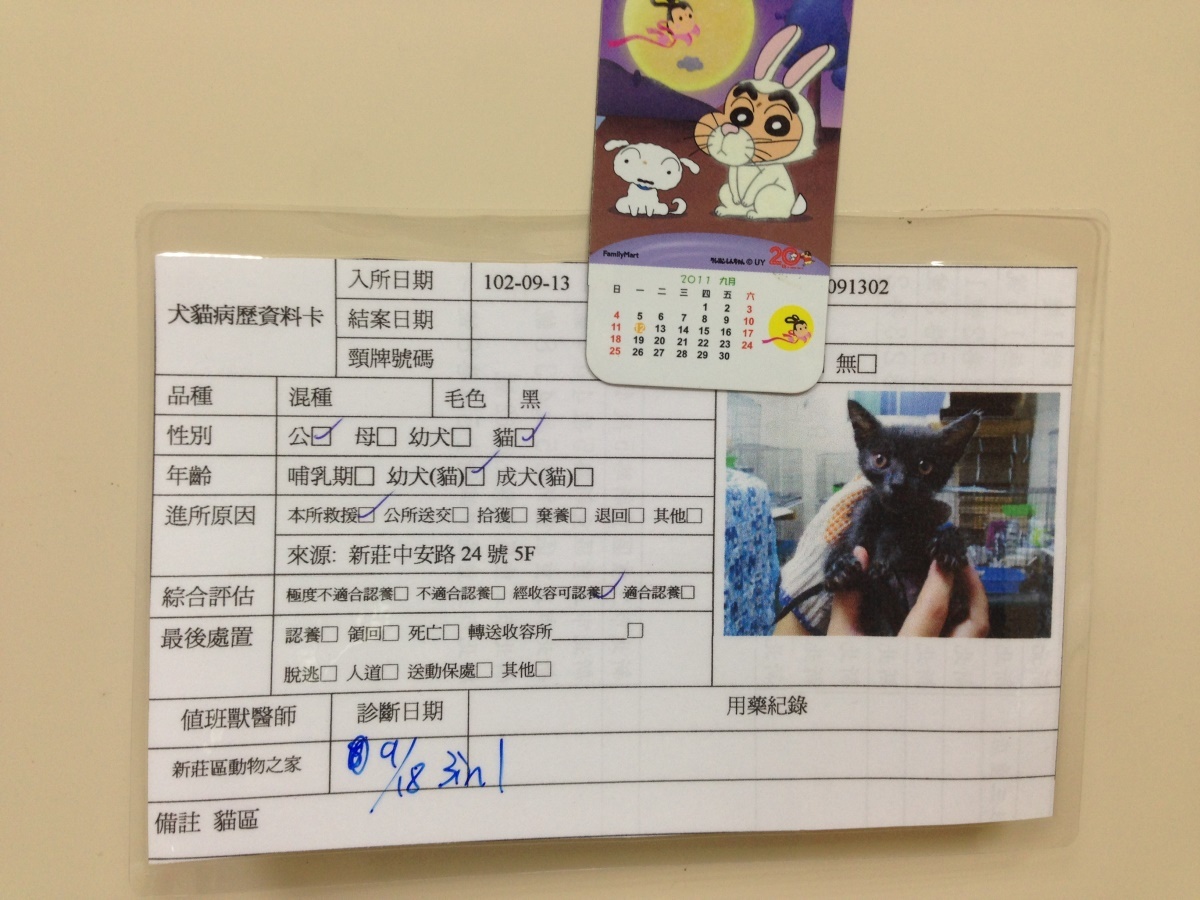 FamilyMart
© UY 20
2011 九月
日 一 二 三 四 五 六
1 2 3
4 5 6 7 8 9 10
11 12 13 14 15 16 17
18 19 20 21 22 23 24
25 26 27 28 29 30
犬貓病歷資料卡
入所日期 102-09-13 091302
結案日期
頸牌號碼 無□
品種 混種 毛色 黑
性別 公☑ 母□ 幼犬□ 貓☑
年齡 哺乳期□ 幼犬(貓)☑ 成犬(貓)□
進所原因 本所救援☑ 公所送交□ 拾獲□ 棄養□ 退回□ 其他□
來源: 新莊中安路 24 號 5F
綜合評估 極度不適合認養□ 不適合認養□ 經收容可認養☑ 適合認養□
最後處置 認養□ 領回□ 死亡□ 轉送收容所________□
脫逃□ 人道□ 送動保處□ 其他□
值班獸醫師 診斷日期 用藥紀錄
新莊區動物之家 9/18 3in1
備註 貓區